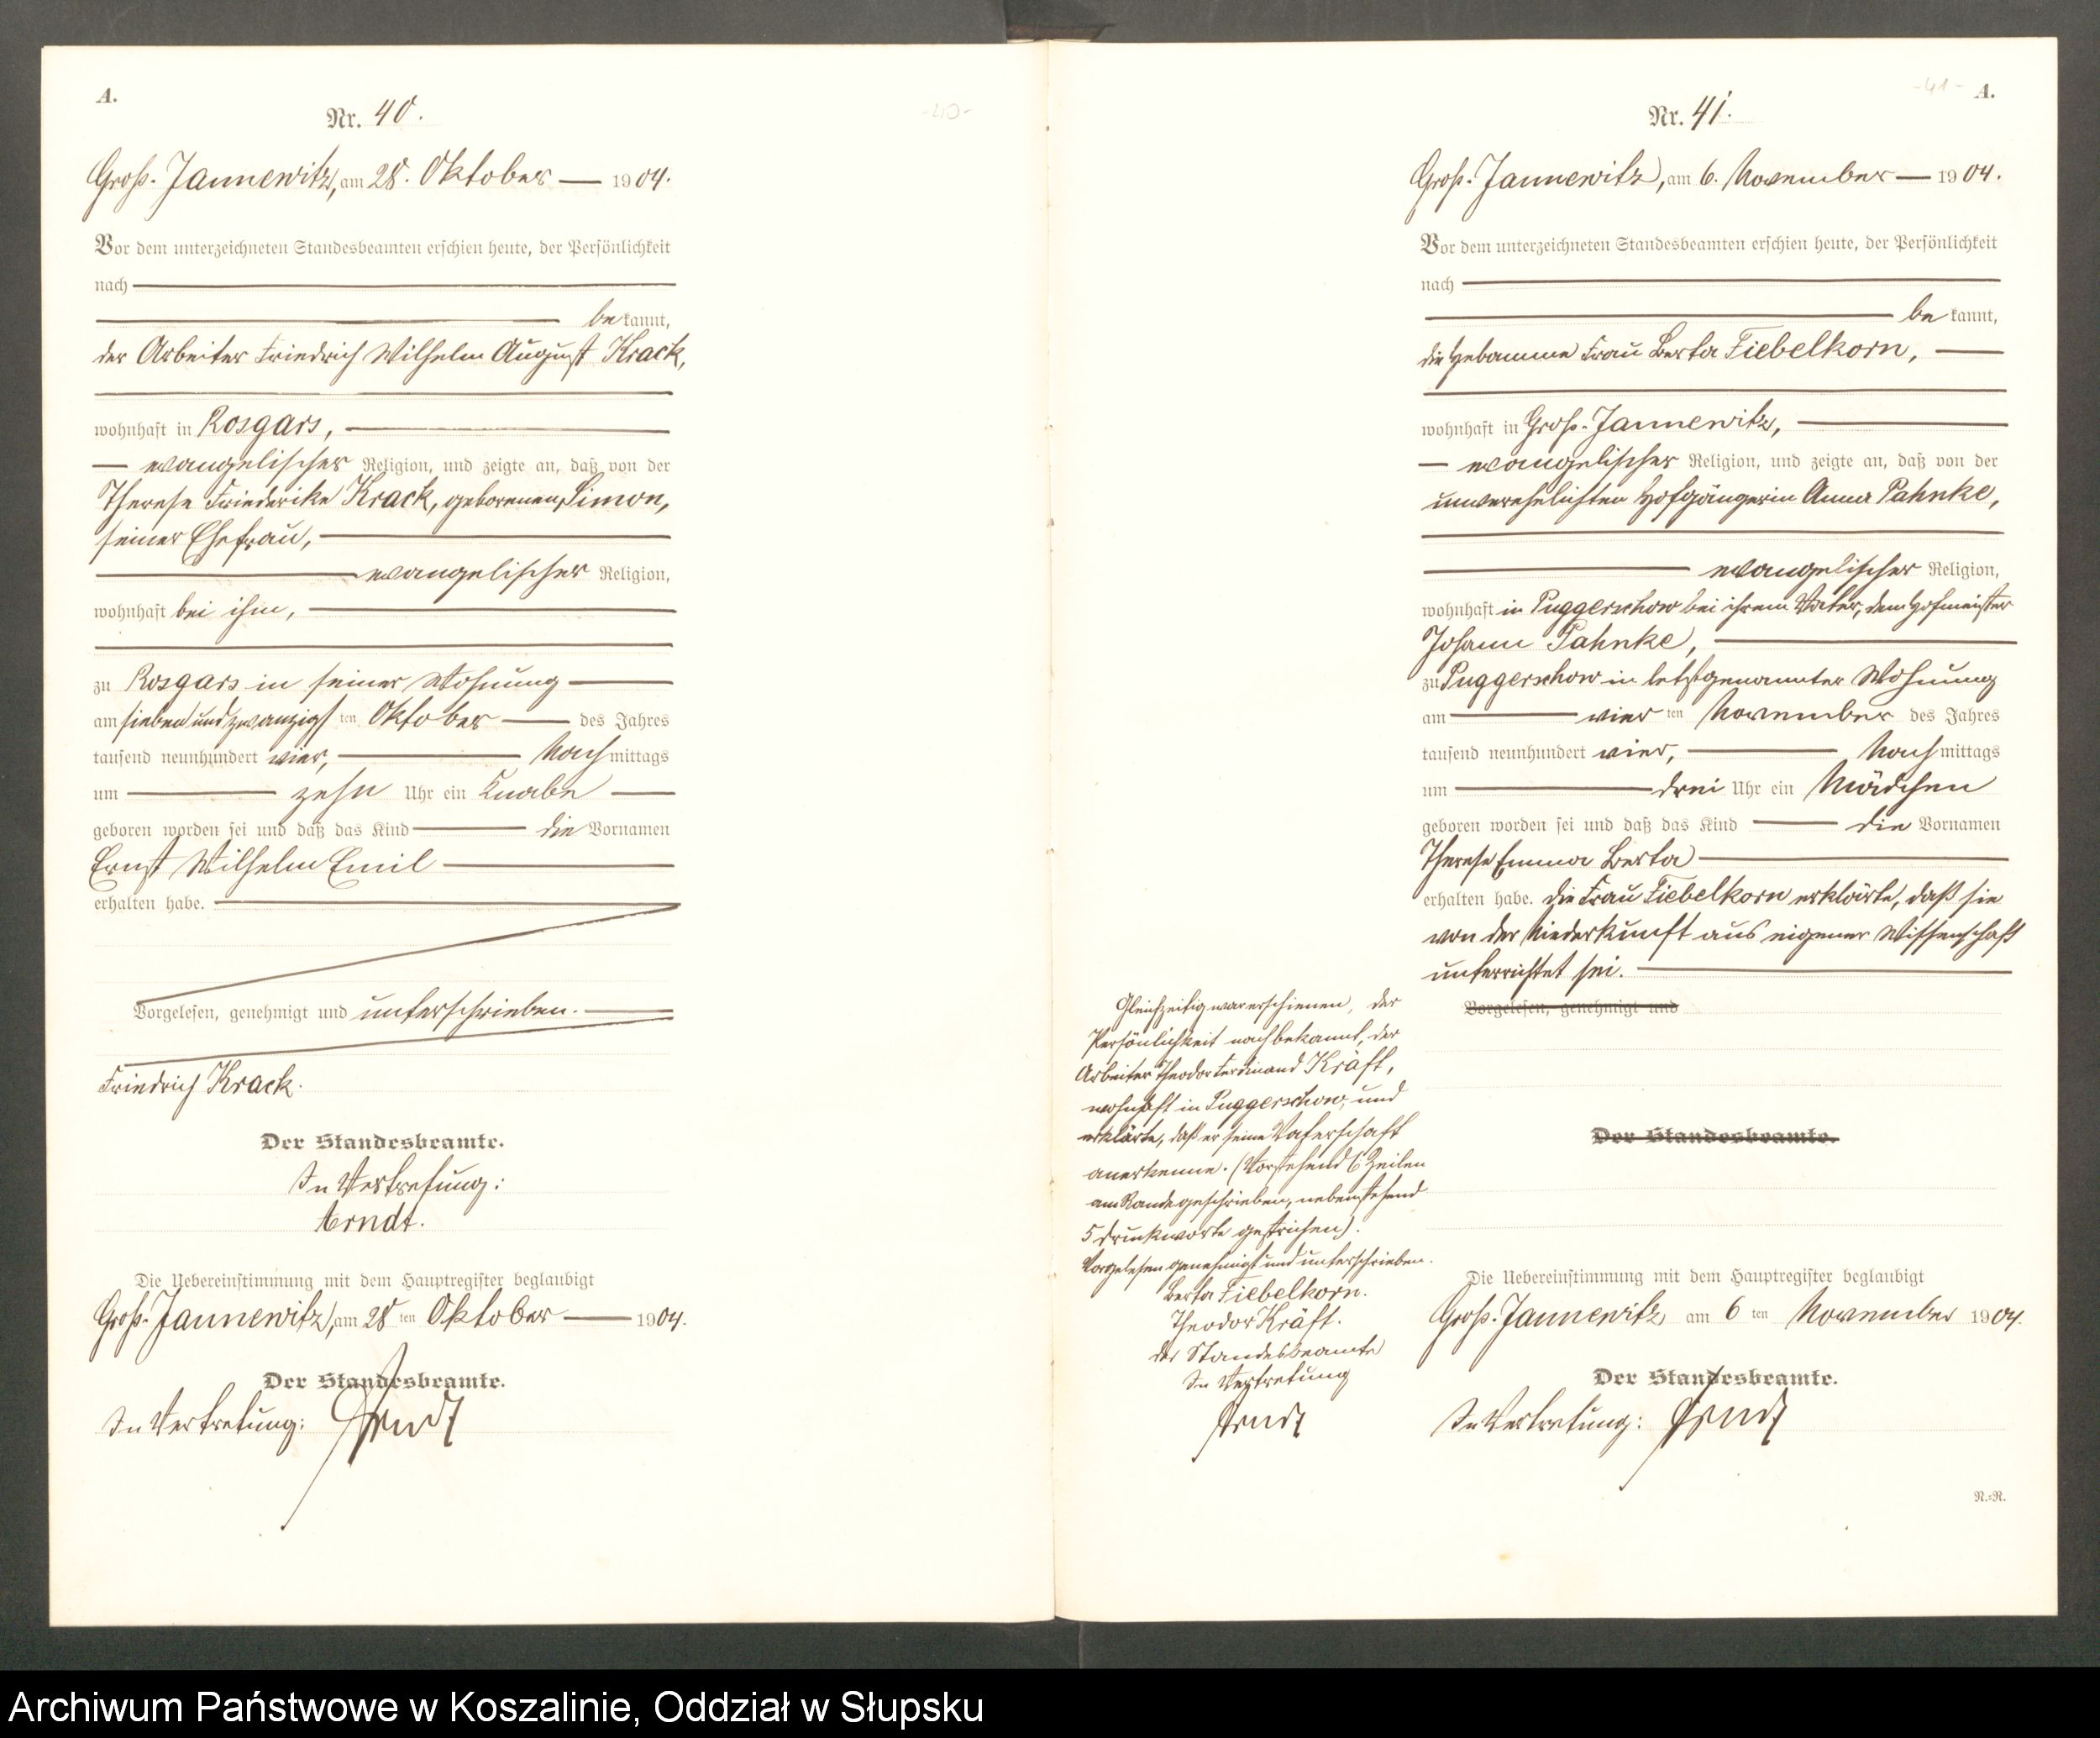 A.
Nr. 40.
-40-
Groß-Jannewitz, am 28. Oktober 1904.
Vor dem unterzeichneten Standesbeamten erschien heute, der Persönlichkeit
nach
bekannt,
der Arbeiter Friedrich Wilhelm August Krack,
wohnhaft in Rosgars,
evangelischer Religion, und zeigte an, daß von der
Therese Friederike Krack, geborenen Simon,
seiner Ehefrau,
evangelischer Religion,
wohnhaft bei ihm,
zu Rosgars in seiner Wohnung
am siebenundzwanzigsten Oktober des Jahres
tausend neunhundert vier, Nachmittags
um zehn Uhr ein Knabe
geboren worden sei und daß das Kind die Vornamen
Ernst Wilhelm Emil
erhalten habe.
Vorgelesen, genehmigt und unterschrieben.
Friedrich Krack.
Der Standesbeamte.
In Vertretung:
Arndt.
Die Uebereinstimmung mit dem Hauptregister beglaubigt
Groß-Jannewitz, am 28ten Oktober 1904.
Der Standesbeamte.
In Vertretung: Arndt
-41- A.
Nr. 41.
Groß-Jannewitz, am 6. November 1904.
Vor dem unterzeichneten Standesbeamten erschien heute, der Persönlichkeit
nach
bekannt,
die Hebamme Frau Berta Fiebelkorn,
wohnhaft in Groß-Jannewitz,
evangelischer Religion, und zeigte an, daß von der
unverehelichten Hofgängerin Anna Pahnke,
evangelischer Religion,
wohnhaft in Puggerschow bei ihrem Vater, dem Hofmeister
Johann Pahnke,
zu Puggerschow in letztgenannter Wohnung
am vierten November des Jahres
tausend neunhundert vier, Nachmittags
um drei Uhr ein Mädchen
geboren worden sei und daß das Kind die Vornamen
Therese Emma Berta
erhalten habe. Die Frau Fiebelkorn erklärte, daß sie
von der Niederkunft aus eigener Wissenschaft
unterrichtet sei.
Vorgelesen, genehmigt und
Gleichzeitig war erschienen, der
Persönlichkeit nach bekannt, der
Arbeiter Theodor Ferdinand Kräft,
wohnhaft in Puggerschow, und
erklärte, daß er seine Vaterschaft
anerkenne. (Vorstehend 6 Zeilen
am Rande geschrieben, nebenstehend
5 Druckworte gestrichen).
Vorgelesen genehmigt und unterschrieben.
Berta Fiebelkorn.
Theodor Kräft.
Der Standesbeamte
In Vertretung
Arndt
Der Standesbeamte.
Die Uebereinstimmung mit dem Hauptregister beglaubigt
Groß-Jannewitz am 6ten November 1904.
Der Standesbeamte.
In Vertretung: Arndt
N.=N.
Archiwum Państwowe w Koszalinie, Oddział w Słupsku